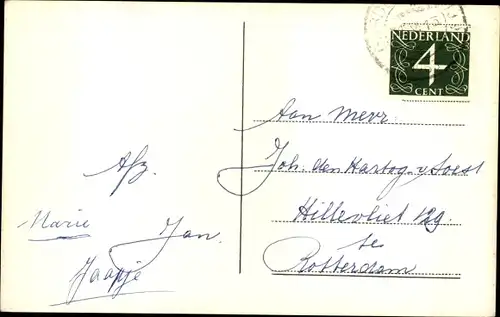 NEDERLAND
4
CENT
Aan Mevr.
Joh. den Hartog-v Soest
Hillevliet 12g.
te
Rotterdam
Afz.
Marie
Jan.
Jaapje